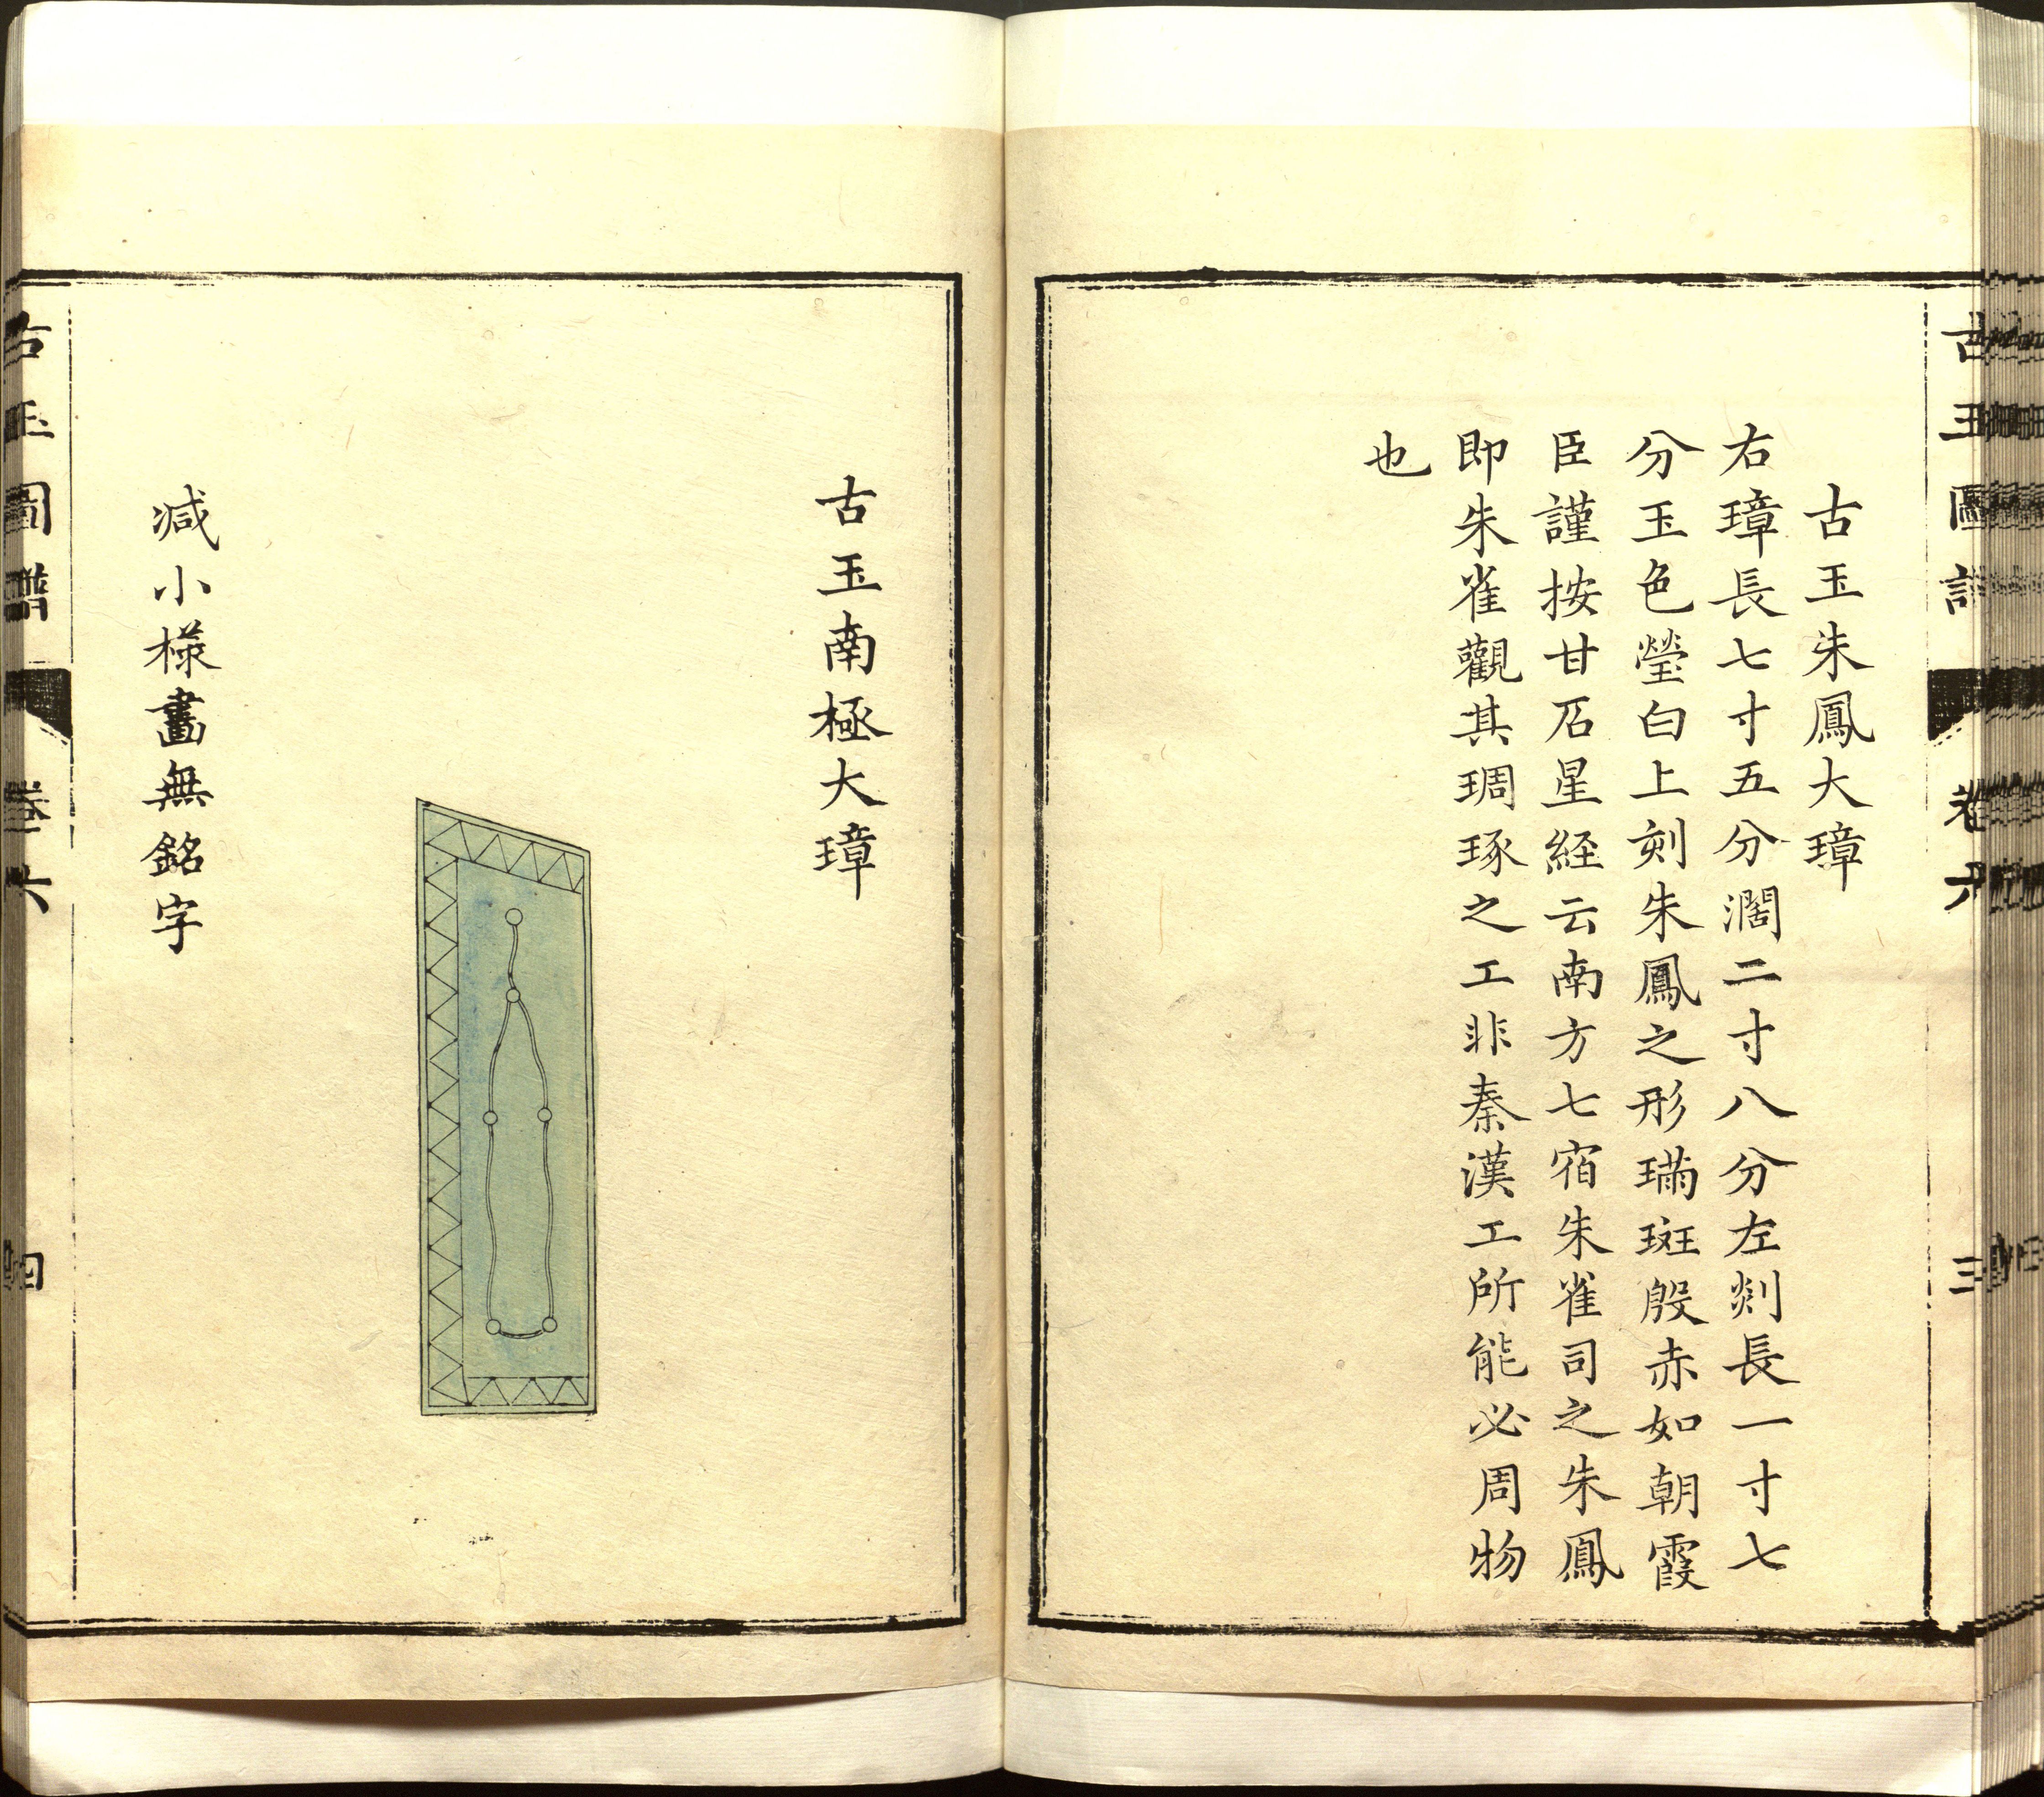 古玉朱鳳大璋
右璋長七寸五分濶二寸八分左剡長一寸七
分玉色瑩白上刻朱鳳之形璊斑殷赤如朝霞
臣謹按甘石星経云南方七宿朱雀司之朱鳳
即朱雀觀其琱琢之工非秦漢工所能必周物
也
古玉南極大璋
減小様畵無銘字
古玉圖譜 卷六 四